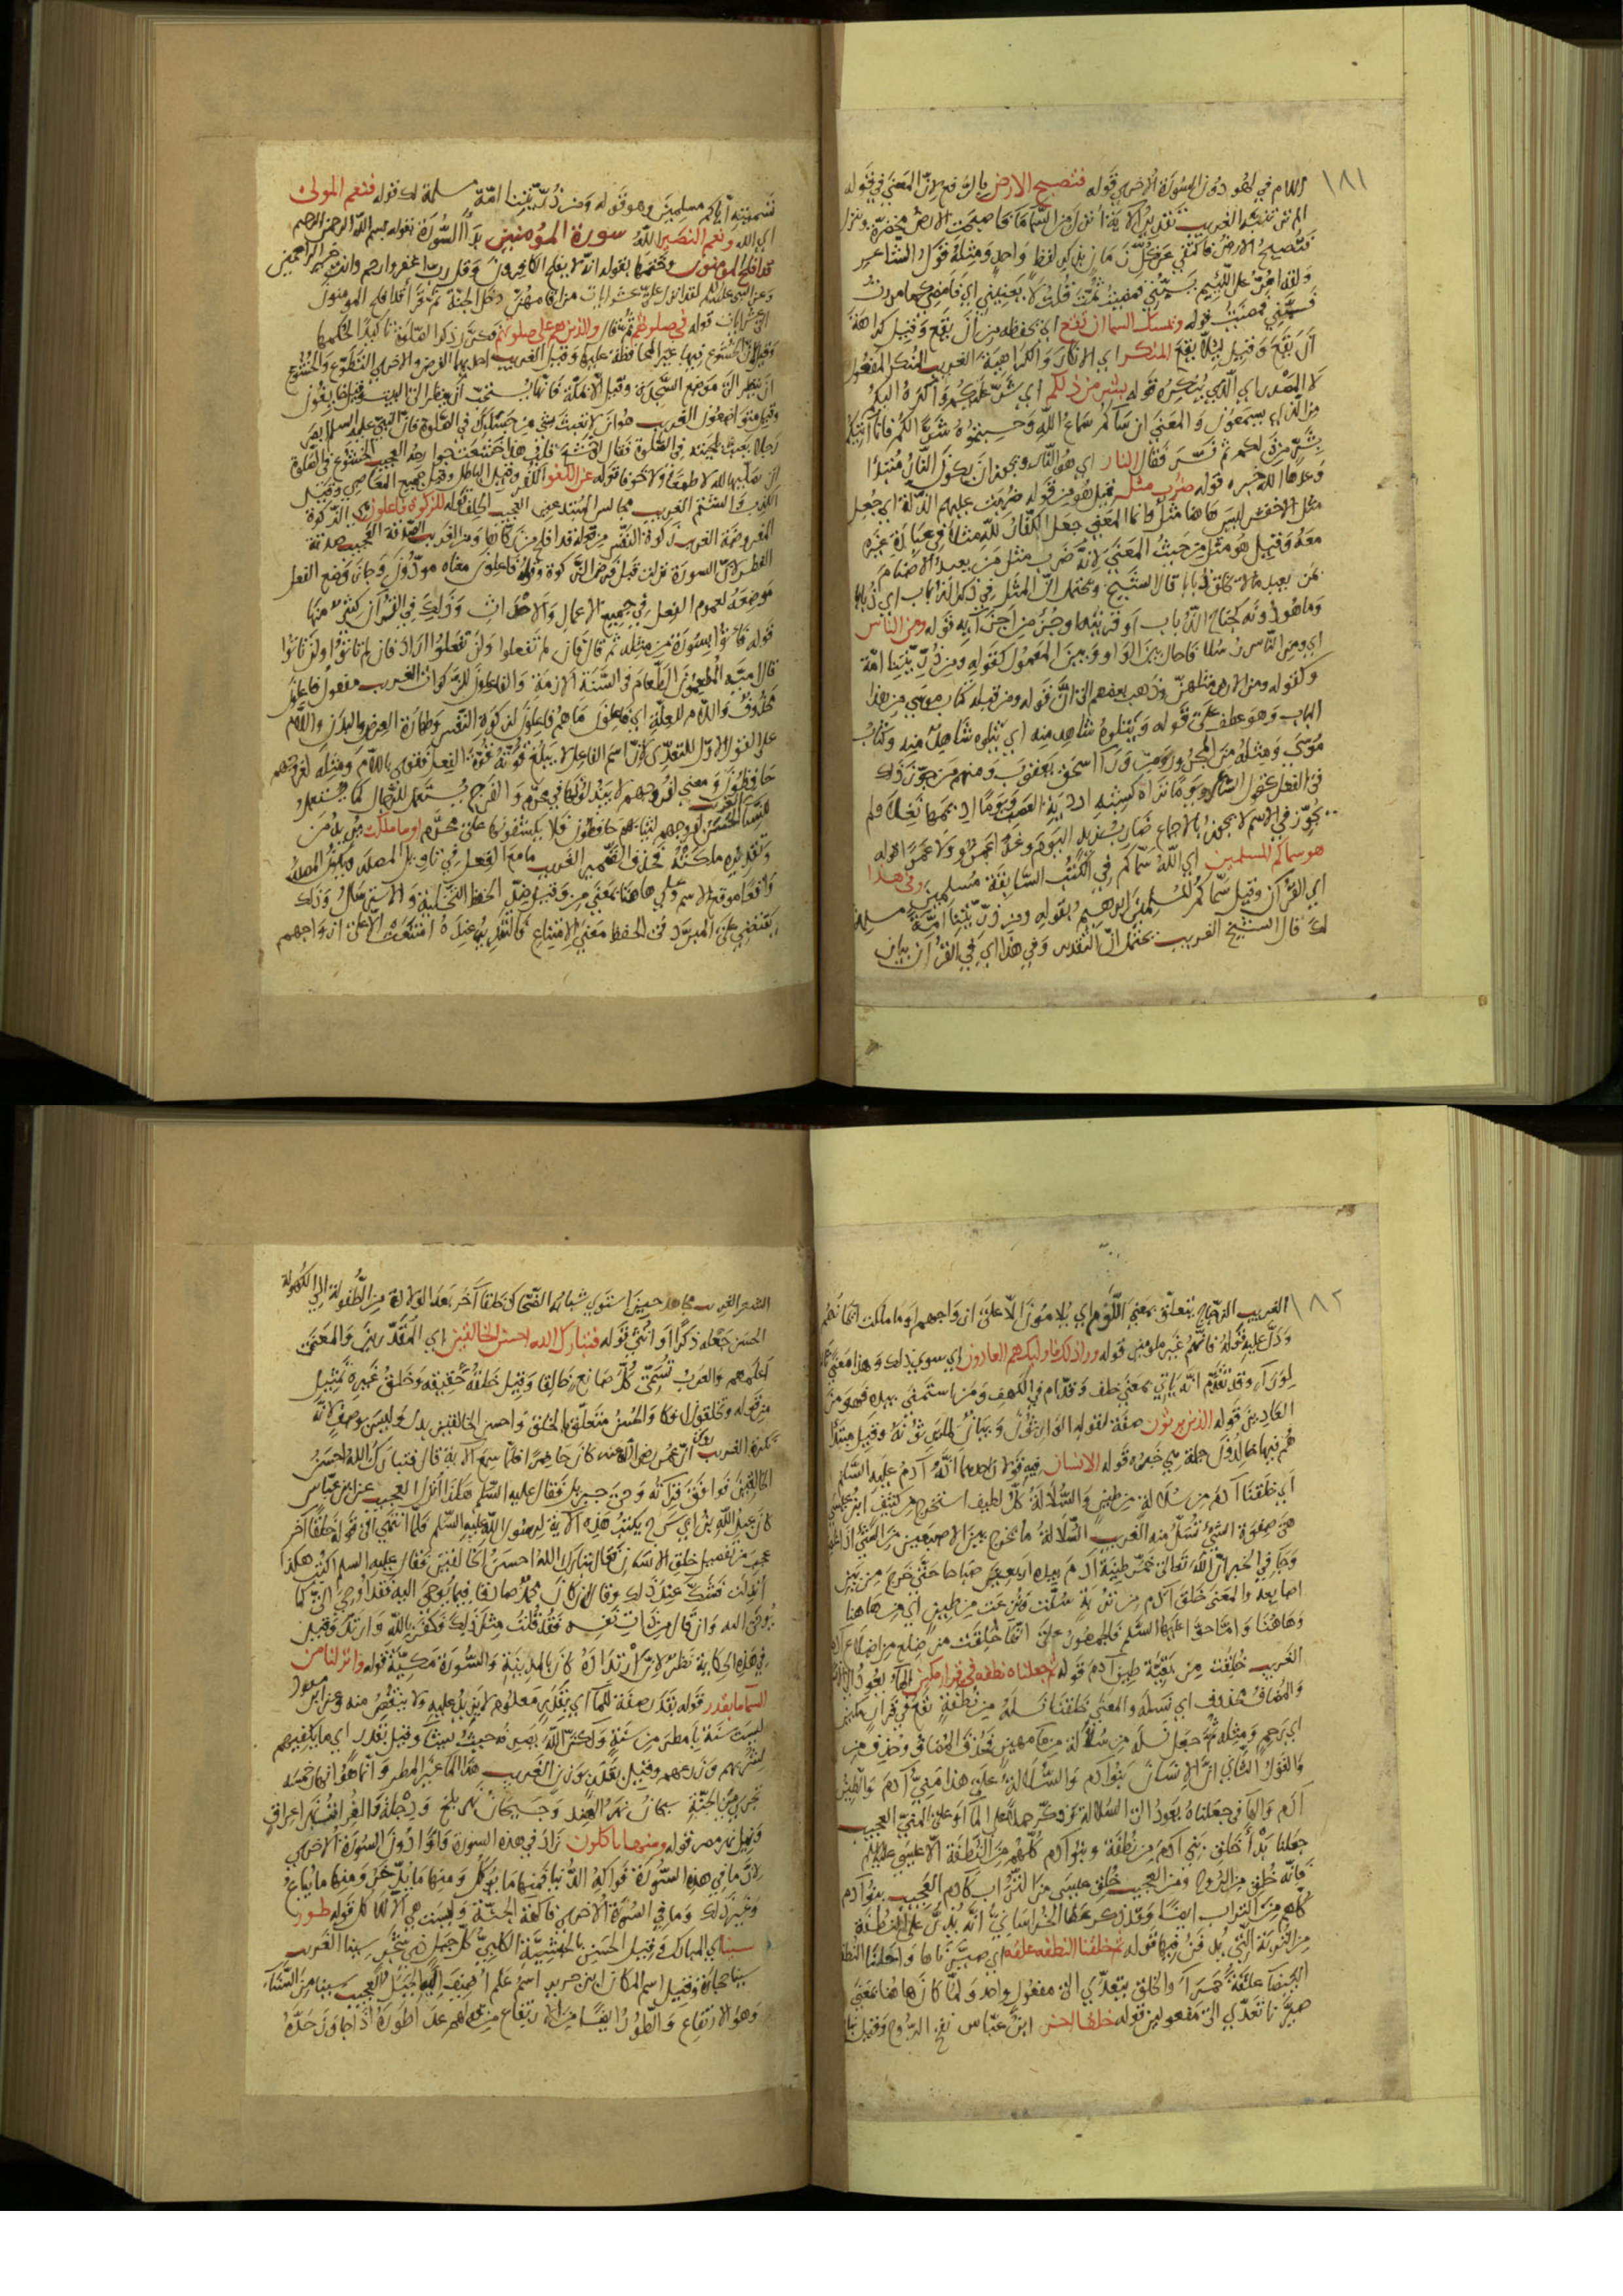 ١٨١
اللام في لهو دون السورة الأخرى قوله فتصبح الارض بالرفع لان المعنى في قوله
الم تر تنبه الغريب تقدير الآية أنزل من السماء ماء فاصبحت الارض مخضرة وينزل
فتصبح الارض فاكتفى عن كل من بلفظ واحد ومثله قول الشاعر
ولقد امر على اللئيم يسبني فمضيت ثمت قلت لا يعنيني اي فامضي
قوله ويمسك السما ان تقع اي يحفظه من أن يقع وقيل كراهة
أن يقع وقيل لئلا يقع المنكر اي الانكار والكراهية الغريب المنكر المفعول
لا المصدر اي الذي ينكره قوله بشر من ذلكم اي بشر عليكم واكره اليكم
من الذي يسمعون والمعنى ان ساكم سماع الله وحسبتموه شرا لكم فانا انبئكم
بشر من ذلكم ثم فسر فقال النار اي هو النار ويجوز ان يكون النار مبتدا
وعدها الله خبره قوله ضرب مثل قيل هو من قوله ضربت عليهم الذلة اي جعل
مثل الاخفش ليس هاهنا مثل وانما المعنى جعل الكفار لله مثلا في عبادة غيره
معه وقيل هو مثل من حيث المعنى لانه ضرب مثل من يعبد الاصنام
بمن يعبد ما لا يخلق ذبابا قال الشيخ ويحتمل ان المثل في ذكر الذباب اي ذبابا
وما هو دونه كجناح الذباب او قرنه وجزء من اجزائه قوله ومن الناس
اي ومن الناس رسلا فحال بين الواو وبين المعمول كقوله ومن ذريتنا امة
وكقوله ومن الارض مثلهن وذهب بعضهم الى ان قوله ومن قبله كتاب موسى من هذا
الباب وهو عطف على قوله ويتلوه شاهد منه اي يتلوه شاهد منه وكتاب
موسى ومثله من المجرور ومن وراء اسحق يعقوب ومنهم من جوز ذلك
في الفعل نحو قول الشاعر
يجوز في الاسم لا يجوز بالاجماع ضارب زيد اليوم وغدا عمرو ولا عمرا قوله
هو سماكم المسلمين اي الله سماكم في الكتب السابقة مسلمين وفي هذا
اي القران وقيل سماكم المسلمين ابرهيم بقوله ومن ذريتنا امة مسلمة
لك قال الشيخ الغريب يحتمل ان التقدير وفي هذا اي في القرآن بيان
تسميته اياكم مسلمين وهو قوله ومن ذريتنا امة مسلمة لك قوله فنعم المولى
اي الله ونعم النصير الله سورة المؤمنين بدأ السورة بقوله بسم الله الرحمن الرحيم
قد افلح المومنون وختمها بقوله انه لا يفلح الكافرون وقل رب اغفر وارحم وانت خير الراحمين
وعن النبي عليه السلم لقد انزل علي عشر ايات من اقامهن دخل الجنة ثم قرأ قد افلح المومنون
العشر ايات قوله في صلوتهم ثم قال والذين هم على صلوتهم فكرر ذكر الصلوة تاكيدا لحكمها
وقيل لان الخشوع فيها غير المحافظة عليها وقيل الغريب احديهما الفرض والاخرى التطوع والخشوع
ان ينظر الى موضع السجدة وقيل الا بمكة فانها يستحب أن ينظر الى البيت
وقيل متواضعون الغريب هو ان لا يعبث بشي من جسدك في الصلوة فان النبي عليه السلم ابصر
رجلا يعبث بلحيته في الصلوة فقال لو خشع قلب هذا خشعت جوارحه العجيب الخشوع في الصلوة
قوله عن اللغو الكفر وقيل الباطل وقيل جميع المعاصي وقيل
الكذب والشتم الغريب مجالس المبتدعين العجيب الحلف قوله للزكوة فاعلون اي الزكوة
المفروضة الغريب زكوة النفس من قوله قد افلح من زكاها ومن الغريب الصدقة العجيب صدقة
الفطر لان السورة نزلت قبل فرض الزكوة وقوله فاعلون معناه مودون وجاز وضع الفعل
موضعه لعموم الفعل في جميع الاعمال والاحداث وذلك في القرآن كثير منها
قوله فأتوا بسورة من مثله ثم قال فان لم تفعلوا ولن تفعلوا اراد فان لم تاتوا ولن تاتوا
قال امية المطعمون الطعام في السنة الازمة والفاعلون للزكوات الغريب مفعول فاعلون
محذوف واللام للعلة اي فاعلون ما هم فاعلون لزكوة النفس وطهارة العرض والبدن واللام
على القول الاول للتعدي لان اسم الفاعل لا يبلغ قوته قوة الفعل فقوي باللام ومثله لفروجهم
حافظون ومعنى لفروجهم لا يبذلونها في محرم والفرج يستعمل للرجال كما يستعمل
للنساء الحسن لفروجهم لثيابهم حافظون فلا يكشفون على محرم او ما ملكت
وتقديره ملكته فحذف الضمير الغريب ما مع الفعل في تاويل المصدر
واقعا موقع الاسم وعلى هاهنا بمعنى من وقيل ضد الحفظ التخلية والاسترسال وذلك
يقتضي على المبرد في الحفظ معنى الامتناع فالتقدير عنده امتنعت الا على ازواجهم
١٨٢
الغريب الزجاج يتعلق بمعنى اللوم اي يلامون الا على ازواجهم او ما ملكت ايمانهم
ودل عليه قوله فانهم غير ملومين قوله وراذلك فاوليك هم العادون اي سوى ذلك وهذا معنى
لوراء وقد تقدم انه ياتي بمعنى خلف وقدام في الكهف ومن استمنى بيده فهو من
العادين قوله الذين يرثون صفة لقوله الوارثون وبيان لما يرثونه وقيل مبتدأ
هم فيها خالدون جملة هي خبره قوله الانسان فيه قولان احدهما انه آدم عليه السلم
اي خلقنا آدم من سلالة من طين والسلالة كل لطيف استخرج من كثيف ابن عباس
هي صفوة الشيء تسل منه الغريب السلالة ما يخرج بين الاصبعين من الشيء
وجاء في الخبر ان الله تعالى خمر طينة آدم بيده اربعين صباحا حتى خرج من بين
اصابعه والمعنى خلق آدم من تربة سلت ونزعت من طين اي من هاهنا
وهاهنا واما حوا عليها السلم فالجمهور على انها خلقت من ضلع من اضلاع آدم
الغريب خلقت من بقية طين آدم قوله ثم جعلناه نطفة في قرار مكين
والمضاف محذوف اي نسله والمعنى خلقنا نسله من نطفة تقع في قرار مكين
اي رحم ومثله ثم جعل نسله من سلالة من ماء مهين فحذف المضاف وحذف من
والقول الثاني ان الانسان بنو آدم والسلالة على هذا مني آدم والطين
آدم والهاء في جعلناه يعود الى السلالة وذكر حملا على الماء او على المني العجيب
جعلنا بدأ خلق بني آدم من نطفة وبنو آدم كلهم من النطفة الا عيسى عليه السلم
فانه خلق من الروح ومن العجيب خلق عيسى من التراب كآدم العجيب بنو آدم
كلهم من التراب ايضا وقد ذكر عطا الخراساني انه يذر على النطفة
من التربة التي يدفن فيها قوله ثم خلقنا النطفة علقة اي صيرناها واحلنا النطفة
البيضاء علقة حمراء والخلق يتعدى الى مفعول واحد ولما كان هاهنا بمعنى
صيرنا تعدى الى مفعولين قوله خلقا اخر ابن عباس نفخ الروح وقيل نبات
الشعر الغريب مجاهد حين استوى شبابه الضحاك خلقا آخر بعد الولادة من الطفولة الى الكهولة
الحسن جعله ذكرا او انثى قوله فتبارك الله احسن الخالقين اي المقدرين والمعنى
اعلمهم والعرب تسمي كل صانع خالقا وقيل خلقه حقيقة وخلق غيره تمثيل
من قوله وتخلقون افكا والحسن متعلق بالخلق واحسن الخالقين بدل وليس بوصف لانه
نكرة الغريب روي ان عمر رضي الله عنه كان حاضرا فلما سمع الآية قال فتبارك الله احسن
الخالقين فوافق قراءته وحي جبريل فقال عليه السلم هكذا انزل العجيب عن ابن عباس
كان عبد الله بن ابي سرح يكتب هذه الآية لرسول الله عليه السلم فلما انتهى الى قوله خلقا آخر
عجب من تفصيل خلق الانسان فقال تبارك الله احسن الخالقين فقال عليه السلم اكتب هكذا
أنزلت فشك عند ذلك وقال ان كان محمد صادقا فيما يوحى اليه فقد أوحي الي كما
يوحى اليه وان قال من ذات نفسه فقد قلت مثل ذلك فكفر بالله وارتد وقيل
في هذه الحكاية نظر لان ارتداده كان بالمدينة والسورة مكية قوله وانزلنا من
السما ما بقدر قوله بقدر صفة للماء اي بقدر معلوم لا يزيد عليه ولا ينقص منه وعن ابن مسعود
ليست سنة بامطر من سنة ولكن الله يصرفه حيث يشاء وقيل بقدر اي ما يكفيهم
لشربهم وزرعهم وقيل بقدر بوزن الغريب هذا الماء غير المطر وانما هو انهار خمسة
تجري من الجنة سيحان نهر الهند وجيحان نهر بلخ ودجلة والفرات نهرا عراق
ونيل نهر مصر قوله ومنها تاكلون زاد في هذه السورة واوا دون السورة الاخرى
لان ما في هذه السورة فواكه الدنيا فمنها ما يوكل ومنها ما يدخر ومنها ما يباع
وغير ذلك وما في السورة الاخرى فاكهة الجنة وليست هي الا للاكل قوله طور
سيناء المبارك وقيل الحسن بالحبشية الكلبي كل جبل ذي شجر سينا الغريب
سينا حجارة وقيل اسم المكان ابن جرير اسم علم اضيف اليها الجبل العجيب سينا من السناء
وهو الارتفاع والطور ايضا من الارتفاع من قولهم علا طوره اذا جاوز حده